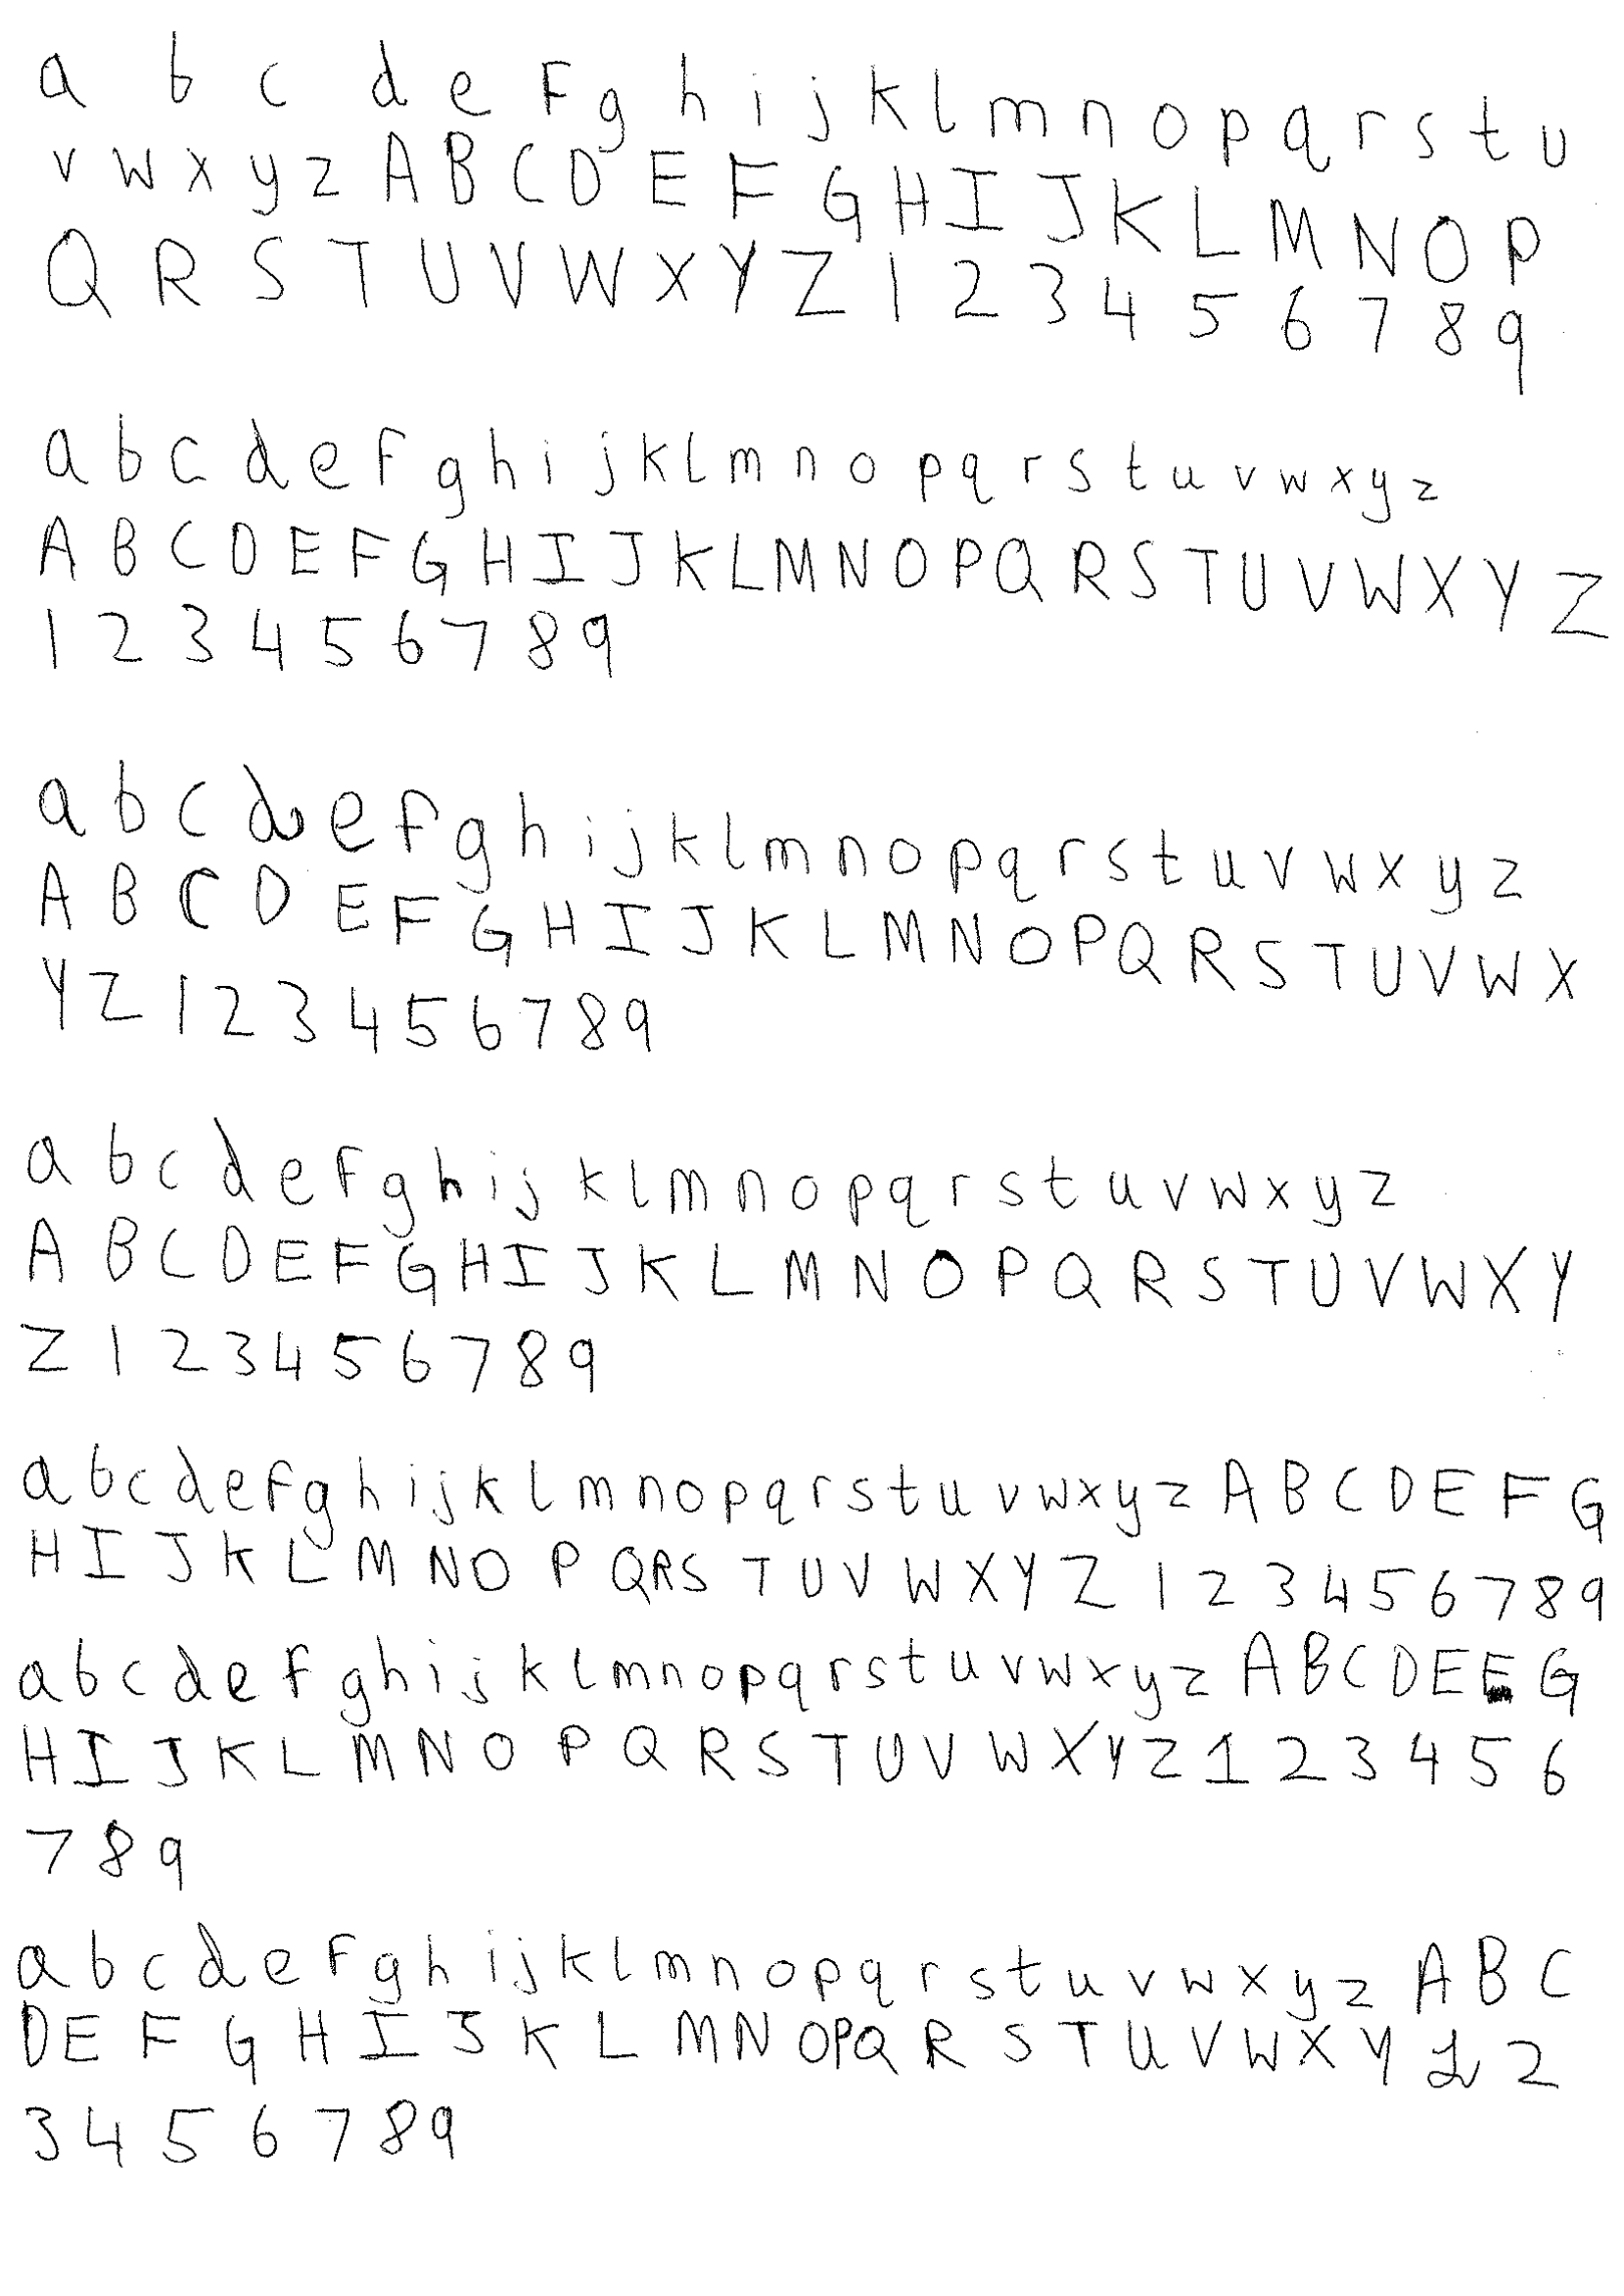 a b c d e f g h i j k l m n o p q r s t u
v w x y z A B C D E F G H I J K L M N O P
Q R S T U V W X Y Z 1 2 3 4 5 6 7 8 9
a b c d e f g h i j k l m n o p q r s t u v w x y z
A B C D E F G H I J K L M N O P Q R S T U V W X Y Z
1 2 3 4 5 6 7 8 9
a b c d e f g h i j k l m n o p q r s t u v w x y z
A B C D E F G H I J K L M N O P Q R S T U V W X
Y Z 1 2 3 4 5 6 7 8 9
a b c d e f g h i j k l m n o p q r s t u v w x y z
A B C D E F G H I J K L M N O P Q R S T U V W X Y
Z 1 2 3 4 5 6 7 8 9
a b c d e f g h i j k l m n o p q r s t u v w x y z A B C D E F G
H I J K L M N O P Q R S T U V W X Y Z 1 2 3 4 5 6 7 8 9
a b c d e f g h i j k l m n o p q r s t u v w x y z A B C D E E G
H I J K L M N O P Q R S T U V W X Y Z 1 2 3 4 5 6
7 8 9
a b c d e f g h i j k l m n o p q r s t u v w x y z A B C
D E F G H I J K L M N O P Q R S T U V W X Y 2
3 4 5 6 7 8 9